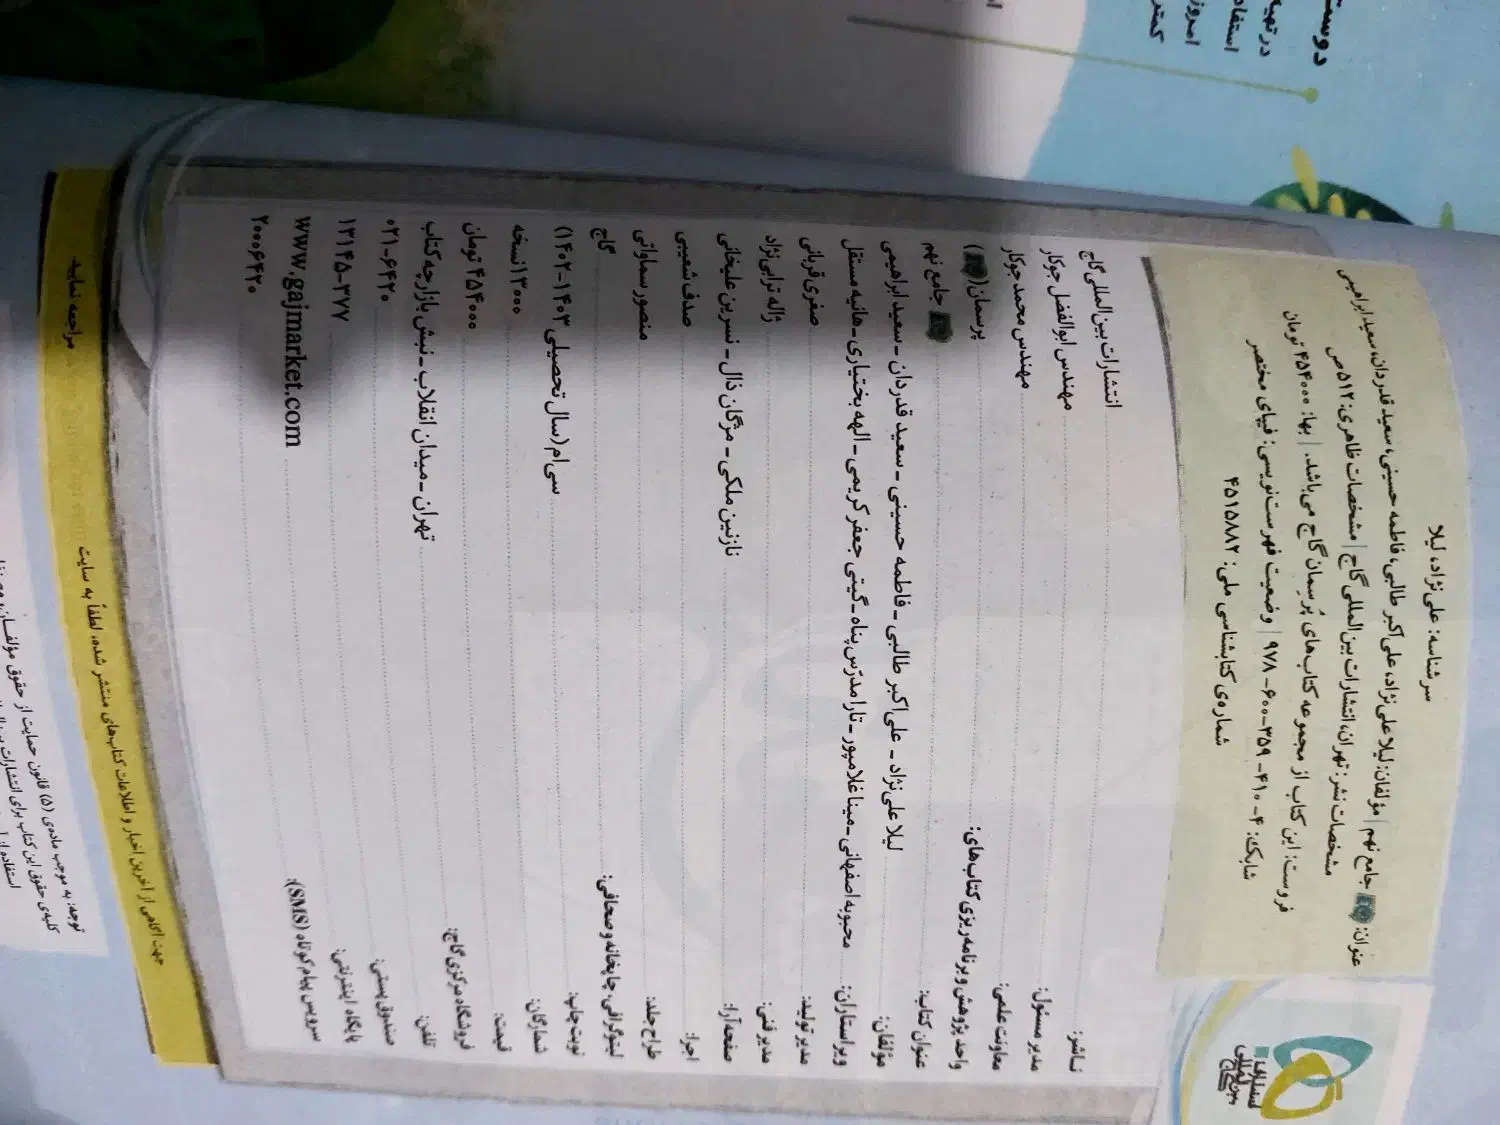 دوست
در تهیه
استفاد
امروز
کمتر
سرشناسه: علی‌نژاد، لیلا
عنوان: جامع نهم | مؤلفان: لیلا علی‌نژاد، علی‌اکبر طالبی، فاطمه حسینی، سعید قدردان، سعید ابراهیمی
مشخصات نشر: تهران، انتشارات بین‌المللی گاج | مشخصات ظاهری: ۵۱۲ ص
فروست: این کتاب از مجموعه کتاب‌های پُرسمان گاج می‌باشد. | بها: ۴۵۴۰۰۰ تومان
شابک: ۴-۴۱۰-۳۵۹-۶۰۰-۹۷۸ | وضعیت فهرست‌نویسی: فیپای مختصر
شماره‌ی کتابشناسی ملی: ۴۵۱۵۸۸۲
ناشر: انتشارات بین‌المللی گاج
مدیر مسئول: مهندس ابوالفضل جوکار
معاونت علمی: مهندس محمد جوکار
واحد پژوهش و برنامه‌ریزی کتاب‌های: پرسمان
عنوان کتاب: جامع نهم
مؤلفان: لیلا علی‌نژاد - علی‌اکبر طالبی - فاطمه حسینی - سعید قدردان - سعید ابراهیمی
ویراستاران: محبوبه اصفهانی - مینا غلامپور - تارا مدرّس پناه - گیتی جعفر کریمی - الهه بختیاری - هانیه مستقل
مدیر تولید: صغری قربانی
مدیر فنی: ژاله ترابی‌نژاد
صفحه‌آرا: نازنین ملکی - مژگان ذال - نسرین علیخانی
اجرا: صدف شعیبی
طراح جلد: منصور سماواتی
لیتوگرافی، چاپخانه و صحافی: گاج
نوبت چاپ: سی‌ام (سال تحصیلی ۱۴۰۳-۱۴۰۲)
شمارگان: ۱۳۰۰۰ نسخه
قیمت: ۴۵۴۰۰۰ تومان
فروشگاه مرکزی گاج: تهران - میدان انقلاب - نبش بازارچه کتاب
تلفن: ۰۲۱-۶۴۲۰
صندوق پستی: ۱۳۱۴۵-۳۷۷
پایگاه اینترنتی: www.gajmarket.com
سرویس پیام کوتاه (SMS): ۲۰۰۰۶۴۲۰
جهت آگاهی از آخرین اخبار و اطلاعات کتاب‌های منتشر شده، لطفاً به سایت مراجعه نمایید.
توجه: به موجب ماده‌ی (۵) قانون حمایت از حقوق مؤلفان،
کلیه‌ی حقوق این کتاب برای انتشارات